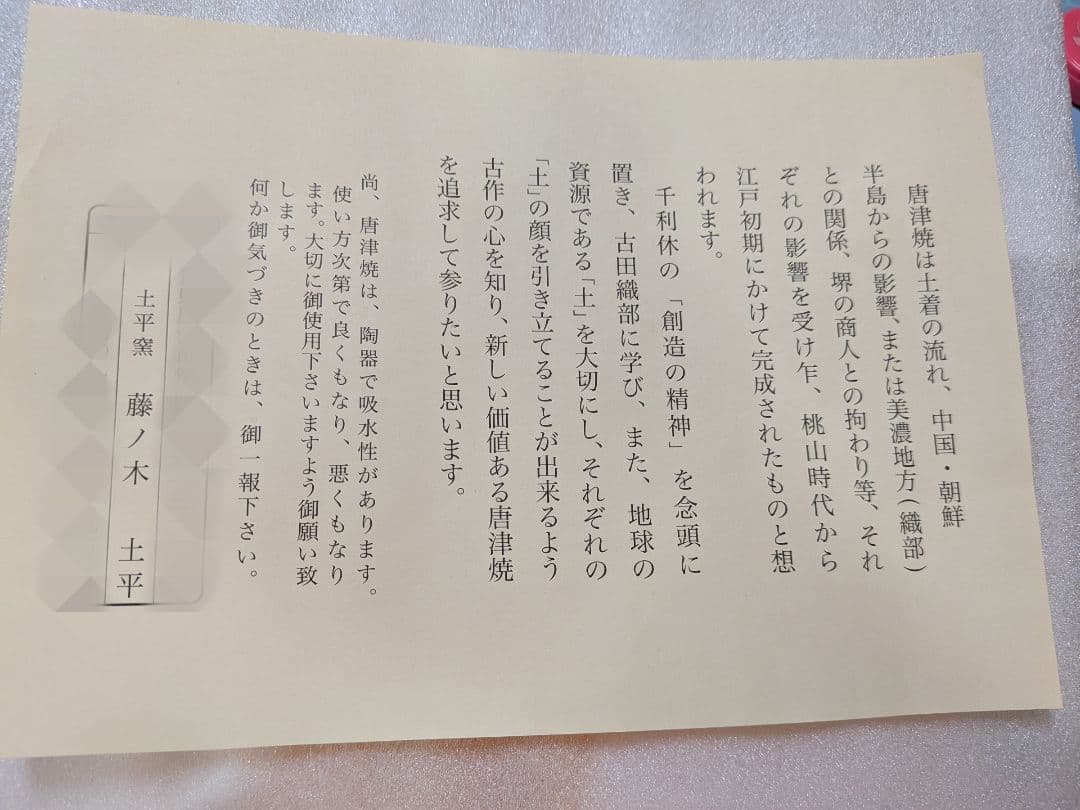 唐津焼は土着の流れ、中国・朝鮮
半島からの影響、または美濃地方(織部)
との関係、堺の商人との拘わり等、それ
ぞれの影響を受け乍、桃山時代から
江戸初期にかけて完成されたものと想
われます。
千利休の「創造の精神」を念頭に
置き、古田織部に学び、また、地球の
資源である「土」を大切にし、それぞれの
「土」の顔を引き立てることが出来るよう
古作の心を知り、新しい価値ある唐津焼
を追求して参りたいと思います。
尚、唐津焼は、陶器で吸水性があります。
使い方次第で良くもなり、悪くもなり
ます。大切に御使用下さいますよう御願い致
します。
何か御気づきのときは、御一報下さい。
土平窯 藤ノ木 土平